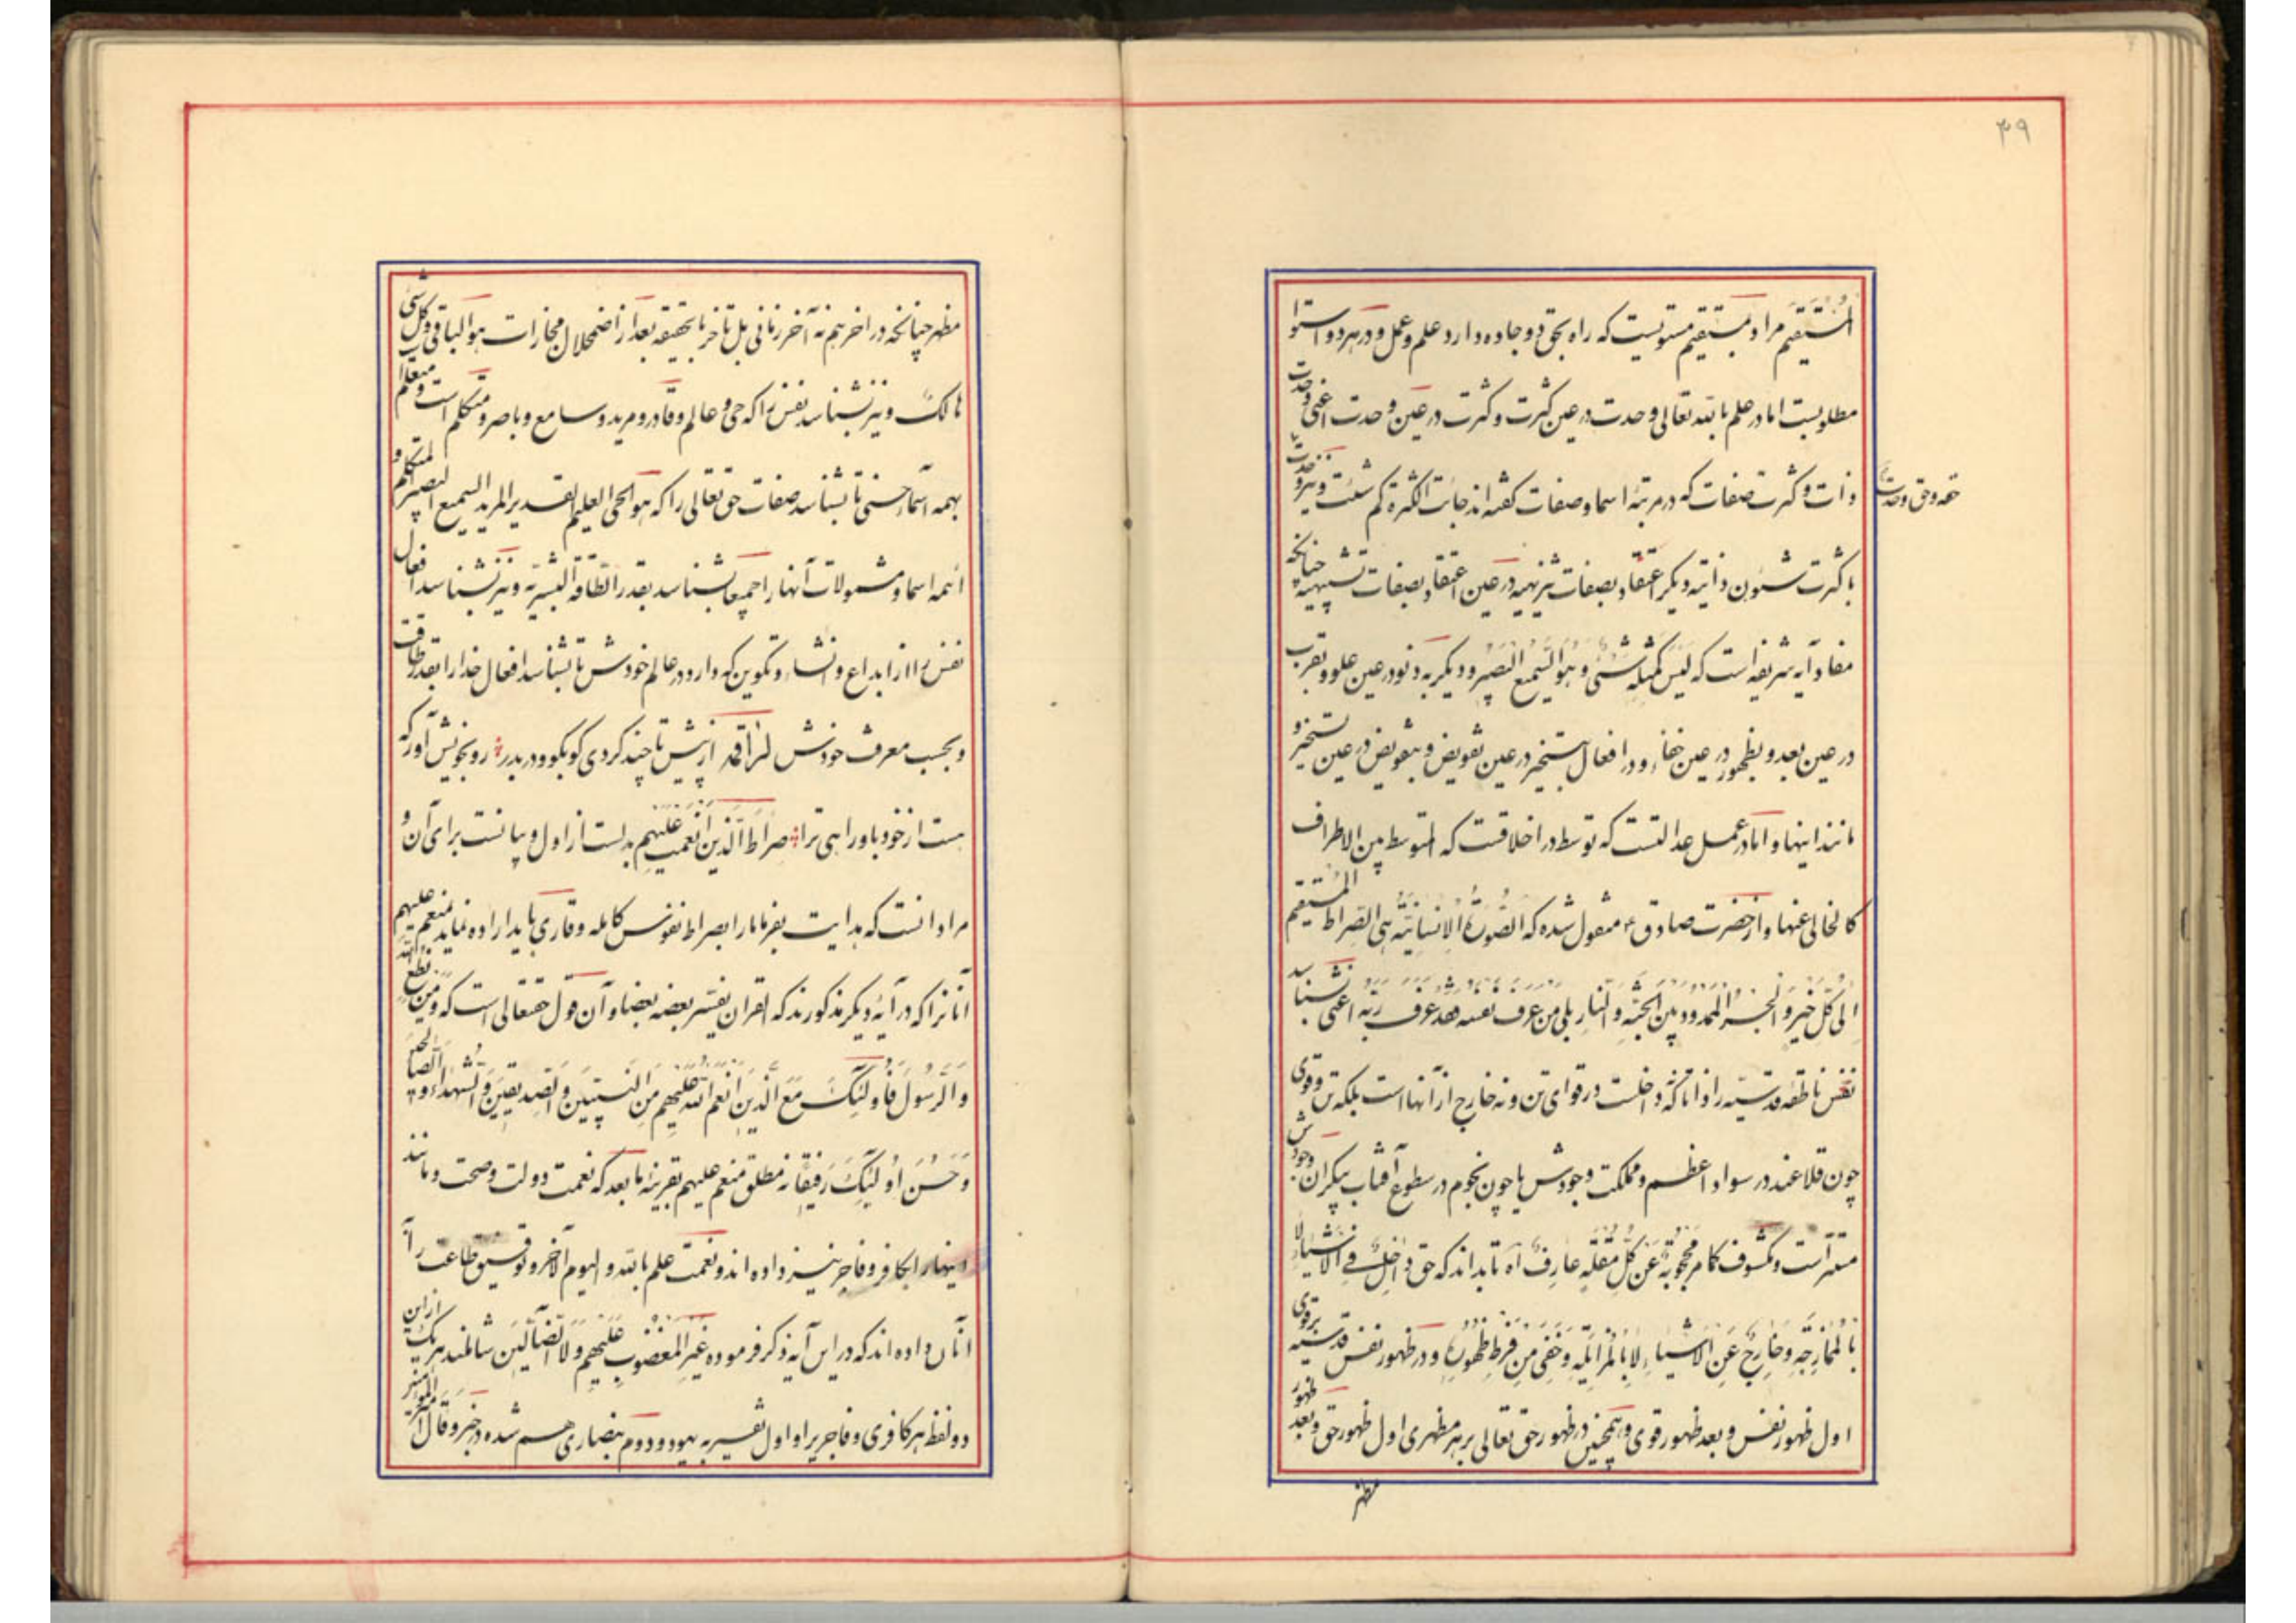 ۳۹
المُستَقیمَ مراد بمستقیم مستویست که راه بحق دو جاده دارد علم و عمل و در هر دو استوا
مطلوبست اما در علم بالله تعالی وحدت در عین کثرت و کثرت در عین وحدت اعنی وحدت
ذات و کثرت صفات که در مرتبهٔ اسما و صفات گفته‌اند جائت الکثرة کم شئت و نیز وحدت
حقه و حق وحدت
با کثرت شئون ذاتیه و دیگر اعتقاد بصفات تنزیهیه در عین اعتقاد بصفات تشبیهیه چنانچه
مفاد آیه شریفه است که لَیسَ کَمِثلِهِ شَیئٌ وَ هُوَ السَّمیعُ البَصیرُ و دیگر به دنو در عین علو و بقرب
در عین بعد و بظهور در عین خفاء و در افعال بتسخیر در عین تفویض و بتفویض در عین تسخیر و
مانند اینها و اما در عمل عدالتست که توسط در اخلاقست که المتوسط بین الاطراف
کالخالی عنها و از حضرت صادق ع منقول شده که الصُّورَةُ الاِنسانِیَّةُ هِیَ الصِّراطُ المُستَقیمُ
اِلی کُلِّ خَیرٍ وَ الجِسرُ المَمدُودُ بَینَ الجَنَّةِ وَ النّارِ بلی مَن عَرَفَ نَفسَهُ فَقَد عَرَفَ رَبَّهُ اعنی بشناسد
نفس ناطقه قدسیه را ذاتا که نه داخلست در قوای تن و نه خارج از آنها است بلکه تن و قوی
چون قلاعند در سواد اعظم و مملکت وجودش یا چون نجوم در سطوع آفتاب بیکران وجودش
مستتر است و مکشوف کما مر مَحجُوبَةٌ عَن کُلِّ مُقلَةِ عارِفٍ آه تا بداند که حق داخِلٌ فِی الاَشیاءِ لا
بِالمُمازَجَةِ وَ خارِجٌ عَنِ الاَشیاءِ لا بِالمُزایَلَةِ وَ خَفِیَ مِن فَرطِ ظُهُورِهِ و در ظهور نفس قدسیه بر قوی
اول ظهور نفس و بعد ظهور قوی و همچنین در ظهور حق تعالی بر هر مظهری اول ظهور حق و بعد ظهور
مظهر
مظهر چنانچه در اخر هم نه آخر زمانی بل تأخر بالحقیقه بعد از اضمحلال مجازات هو الباقی و کل شئ
هالک و نیز بشناسد نفس را که حی و عالم و قادر و مرید و سامع و باصر و متکلم است و متعلم
بهمه اسماء حسنی تا بشناسد صفات حق تعالی را که هو الحی العلیم القدیر المرید السمیع البصیر المتکلم و
ائمه اسما و مشمولات آنها را جمیعا بشناسد بقدر الطاقة البشریة و نیز بشناسد افعال
نفس را از ابداع و انشاء و تکوین که دارد در عالم خودش تا بشناسد افعال خدا را بقدر طاقت
و بحسب معرفت خودش از پیش تا چند کردی کو بکو و در بدر ؞ رو بخویش آور که
هست از خود باو راهی ترا ؞ صِراطَ الَّذینَ اَنعَمتَ عَلَیهِم بدلست از اول و بیانست برای آن و
مراد انست که هدایت بفرما ما را بصراط نفوس کامله و قاری باید اراده نماید بمنعم علیهم
آنانرا که در آیهٔ دیگر مذکورند که القرآن یفسر بعضه بعضا و آن قول حقتعالی است که وَ مَن یُطِعِ اللهَ
وَ الرَّسُولَ فَاُولئِکَ مَعَ الَّذینَ اَنعَمَ اللهُ عَلَیهِم مِنَ النَّبِیّینَ وَ الصِّدّیقینَ وَ الشُّهَداءِ وَ الصّالِحینَ
وَ حَسُنَ اُولئِکَ رَفیقًا نه مطلق منعم علیهم بقرینه ما بعد که نعمت دولت و صحت و مانند
اینها را بکافر و فاجر نیز داده‌اند و نعمت علم بالله و الیوم الآخر و توفیق طاعت را
بآنان داده‌اند که در این آیه ذکر فرموده غَیرِ المَغضُوبِ عَلَیهِم وَ لاَ الضّالّینَ شاملند هر یک از این
دو لفظ هر کافری و فاجریرا و اول تفسیر به یهود و دوم بنصاری هم شده در خبر و قال امیر المؤمنین